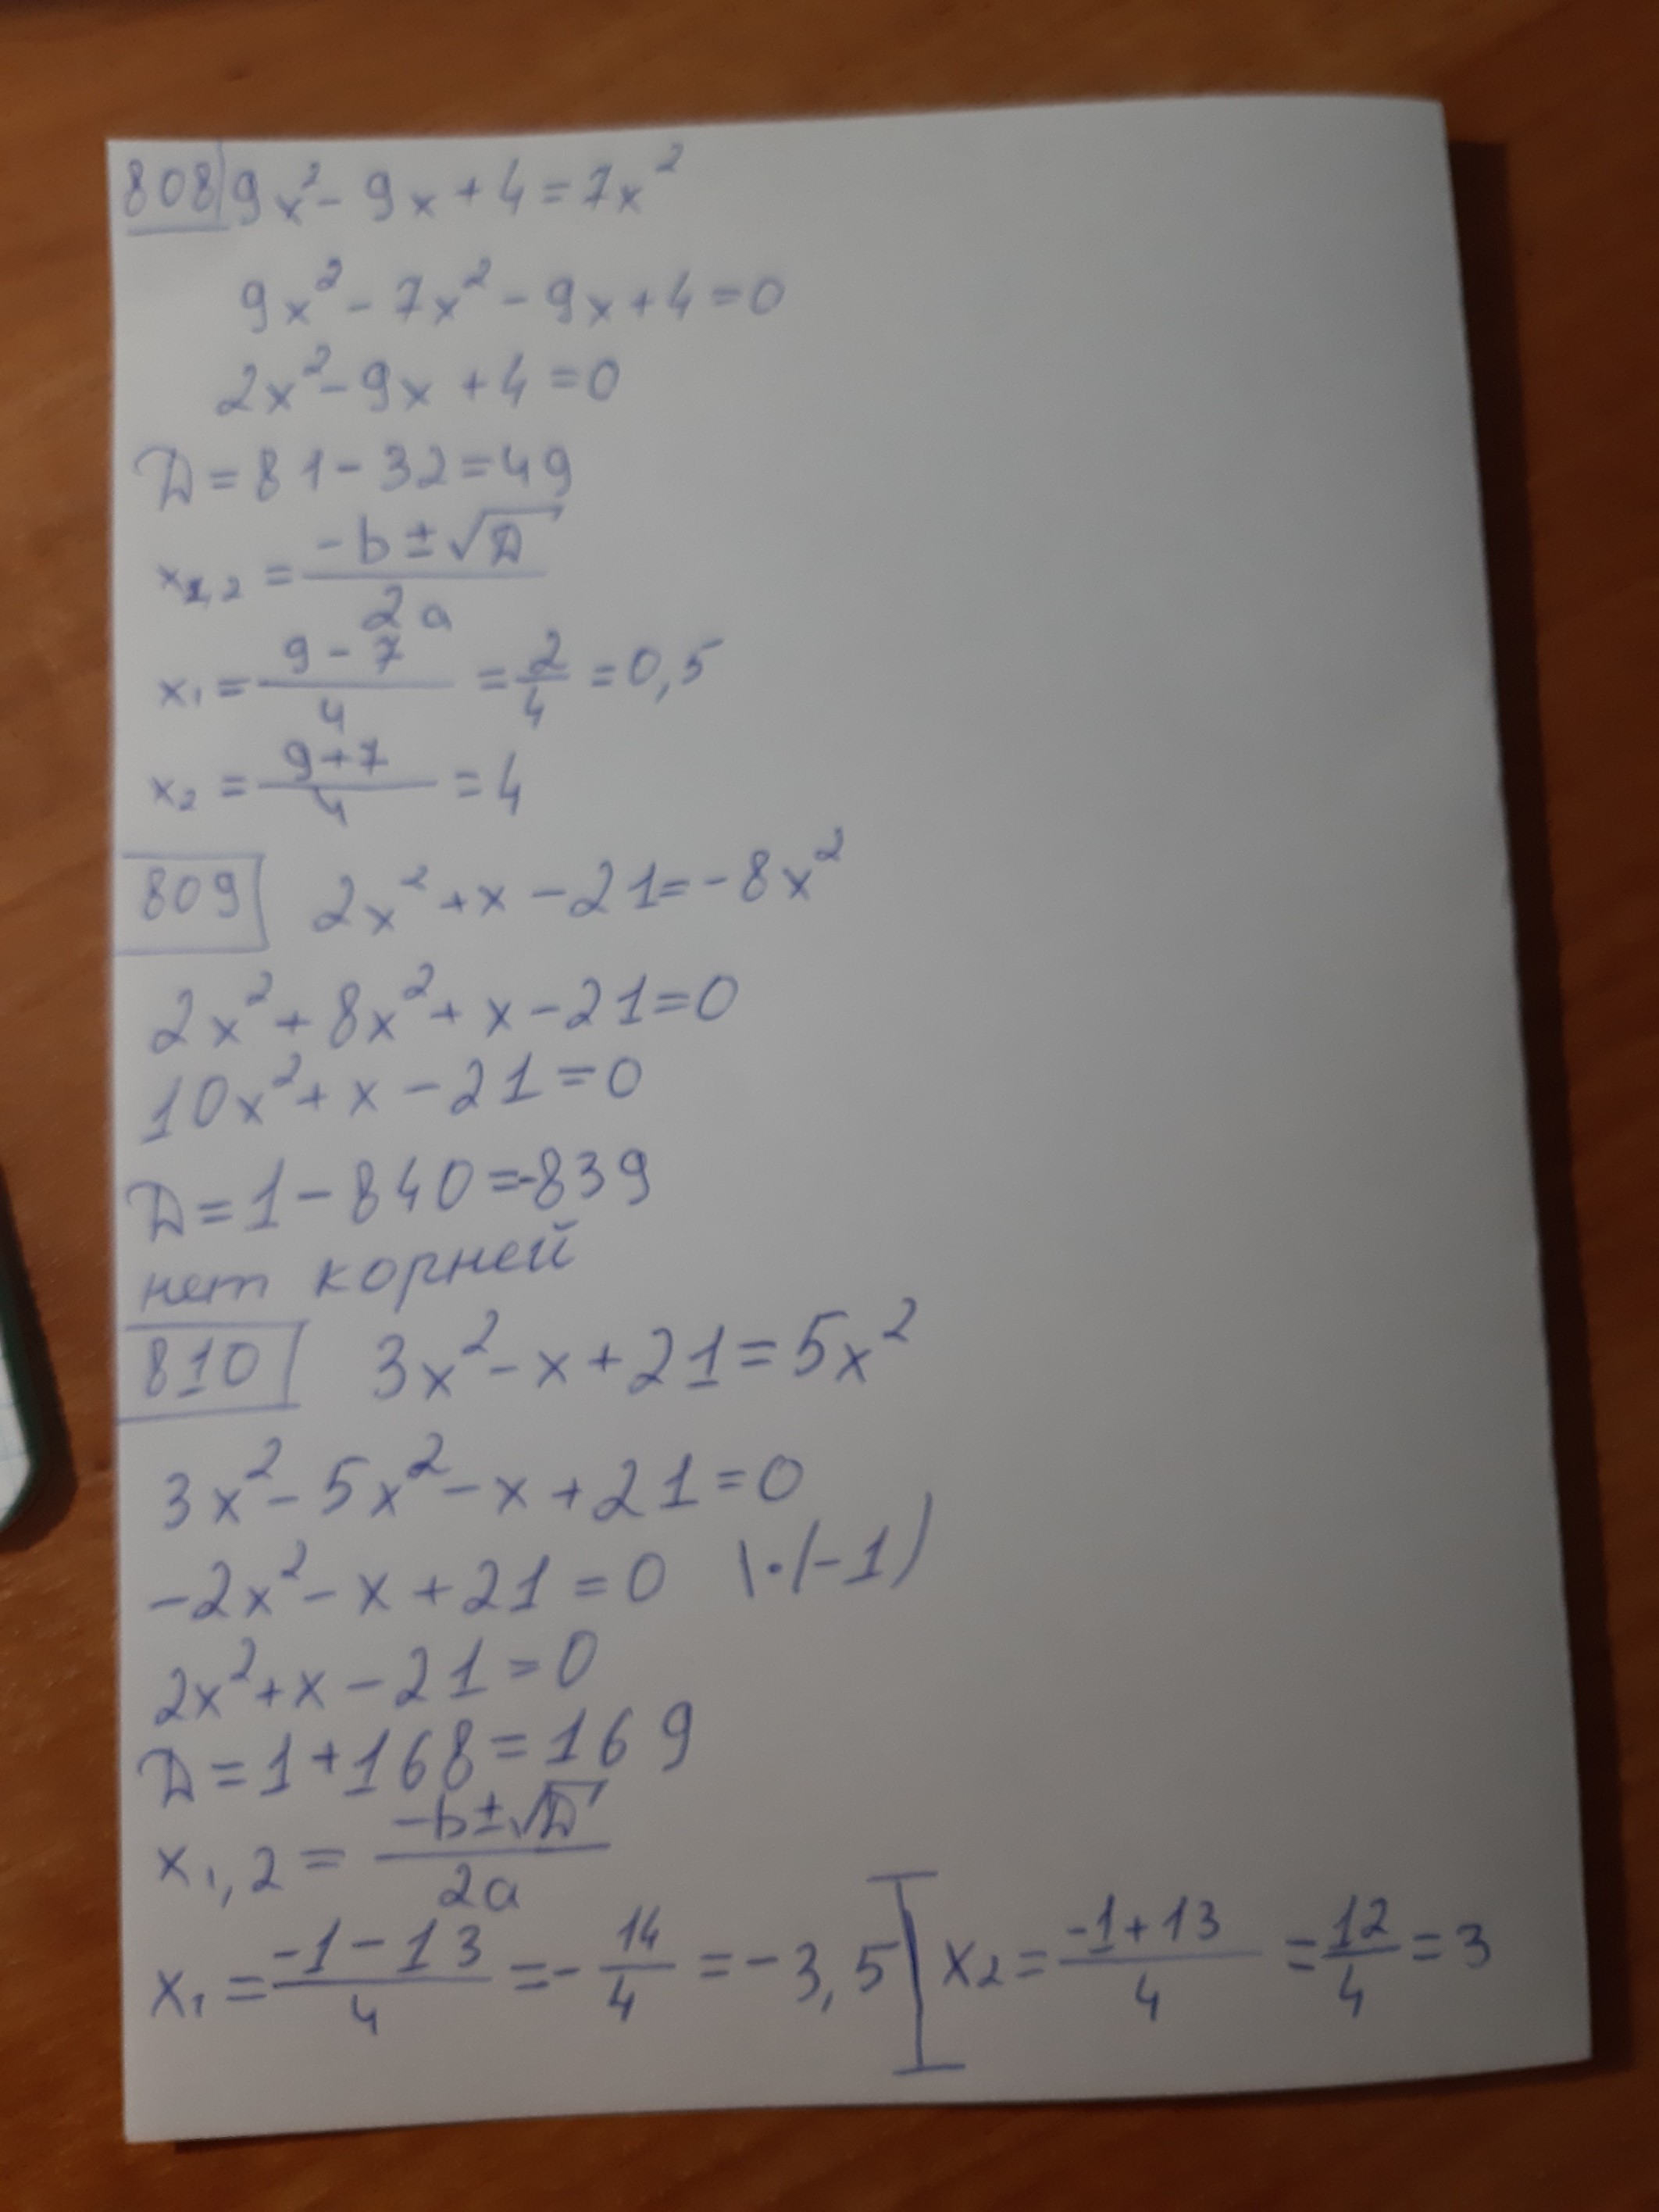 808 9x² - 9x + 4 = 7x²
9x² - 7x² - 9x + 4 = 0
2x² - 9x + 4 = 0
D = 81 - 32 = 49
x₁,₂ = (-b ± √D) / 2a
x₁ = (9 - 7) / 4 = 2/4 = 0,5
x₂ = (9 + 7) / 4 = 4
809 2x² + x - 21 = -8x²
2x² + 8x² + x - 21 = 0
10x² + x - 21 = 0
D = 1 - 840 = -839
нет корней
810 3x² - x + 21 = 5x²
3x² - 5x² - x + 21 = 0
-2x² - x + 21 = 0 | · (-1)
2x² + x - 21 = 0
D = 1 + 168 = 169
x₁,₂ = (-b ± √D) / 2a
x₁ = (-1 - 13) / 4 = - 14/4 = -3,5 | x₂ = (-1 + 13) / 4 = 12/4 = 3